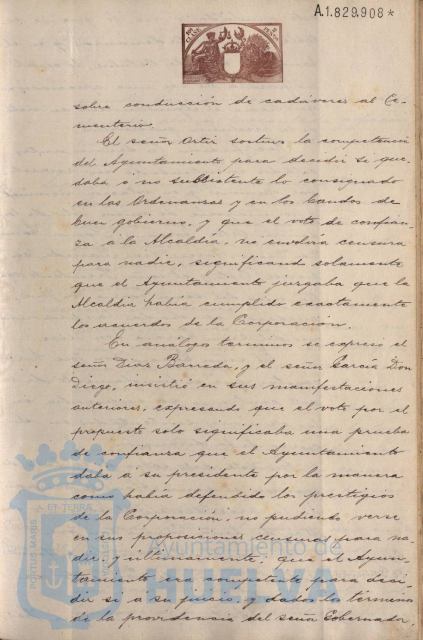 A.1.829.908*
sobre conducción de cadáveres al Ce-
menterio.
El señor Ortiz sostuvo la competencia
del Ayuntamiento para decidir si que-
daba ó no subsistente lo consignado
en las Ordenanzas y en los Bandos de
buen gobierno, y que el voto de confian-
za á la Alcaldía, no envolvía censura
para nadie, significando solamente
que el Ayuntamiento juzgaba que la
Alcaldía había cumplido exactamente
los acuerdos de la Corporación.
En análogos términos se expresó el
señor Díaz Barreda, y el señor García Don
Diego, insistió en sus manifestaciones
anteriores, expresando que el voto por el
propuesto solo significaba una prueba
de confianza que el Ayuntamiento
daba á su presidente por la manera
como había defendido los prestigios
de la Corporación, no pudiendo verse
en sus proposiciones censuras para na-
die; y últimamente, que el Ayun-
tamiento era competente para deci-
dir si á su juicio, y dados los términos
de la providencia del señor Gobernador,
PORTUS MARIS ET TERRÆ
Ayuntamiento de
HUELVA